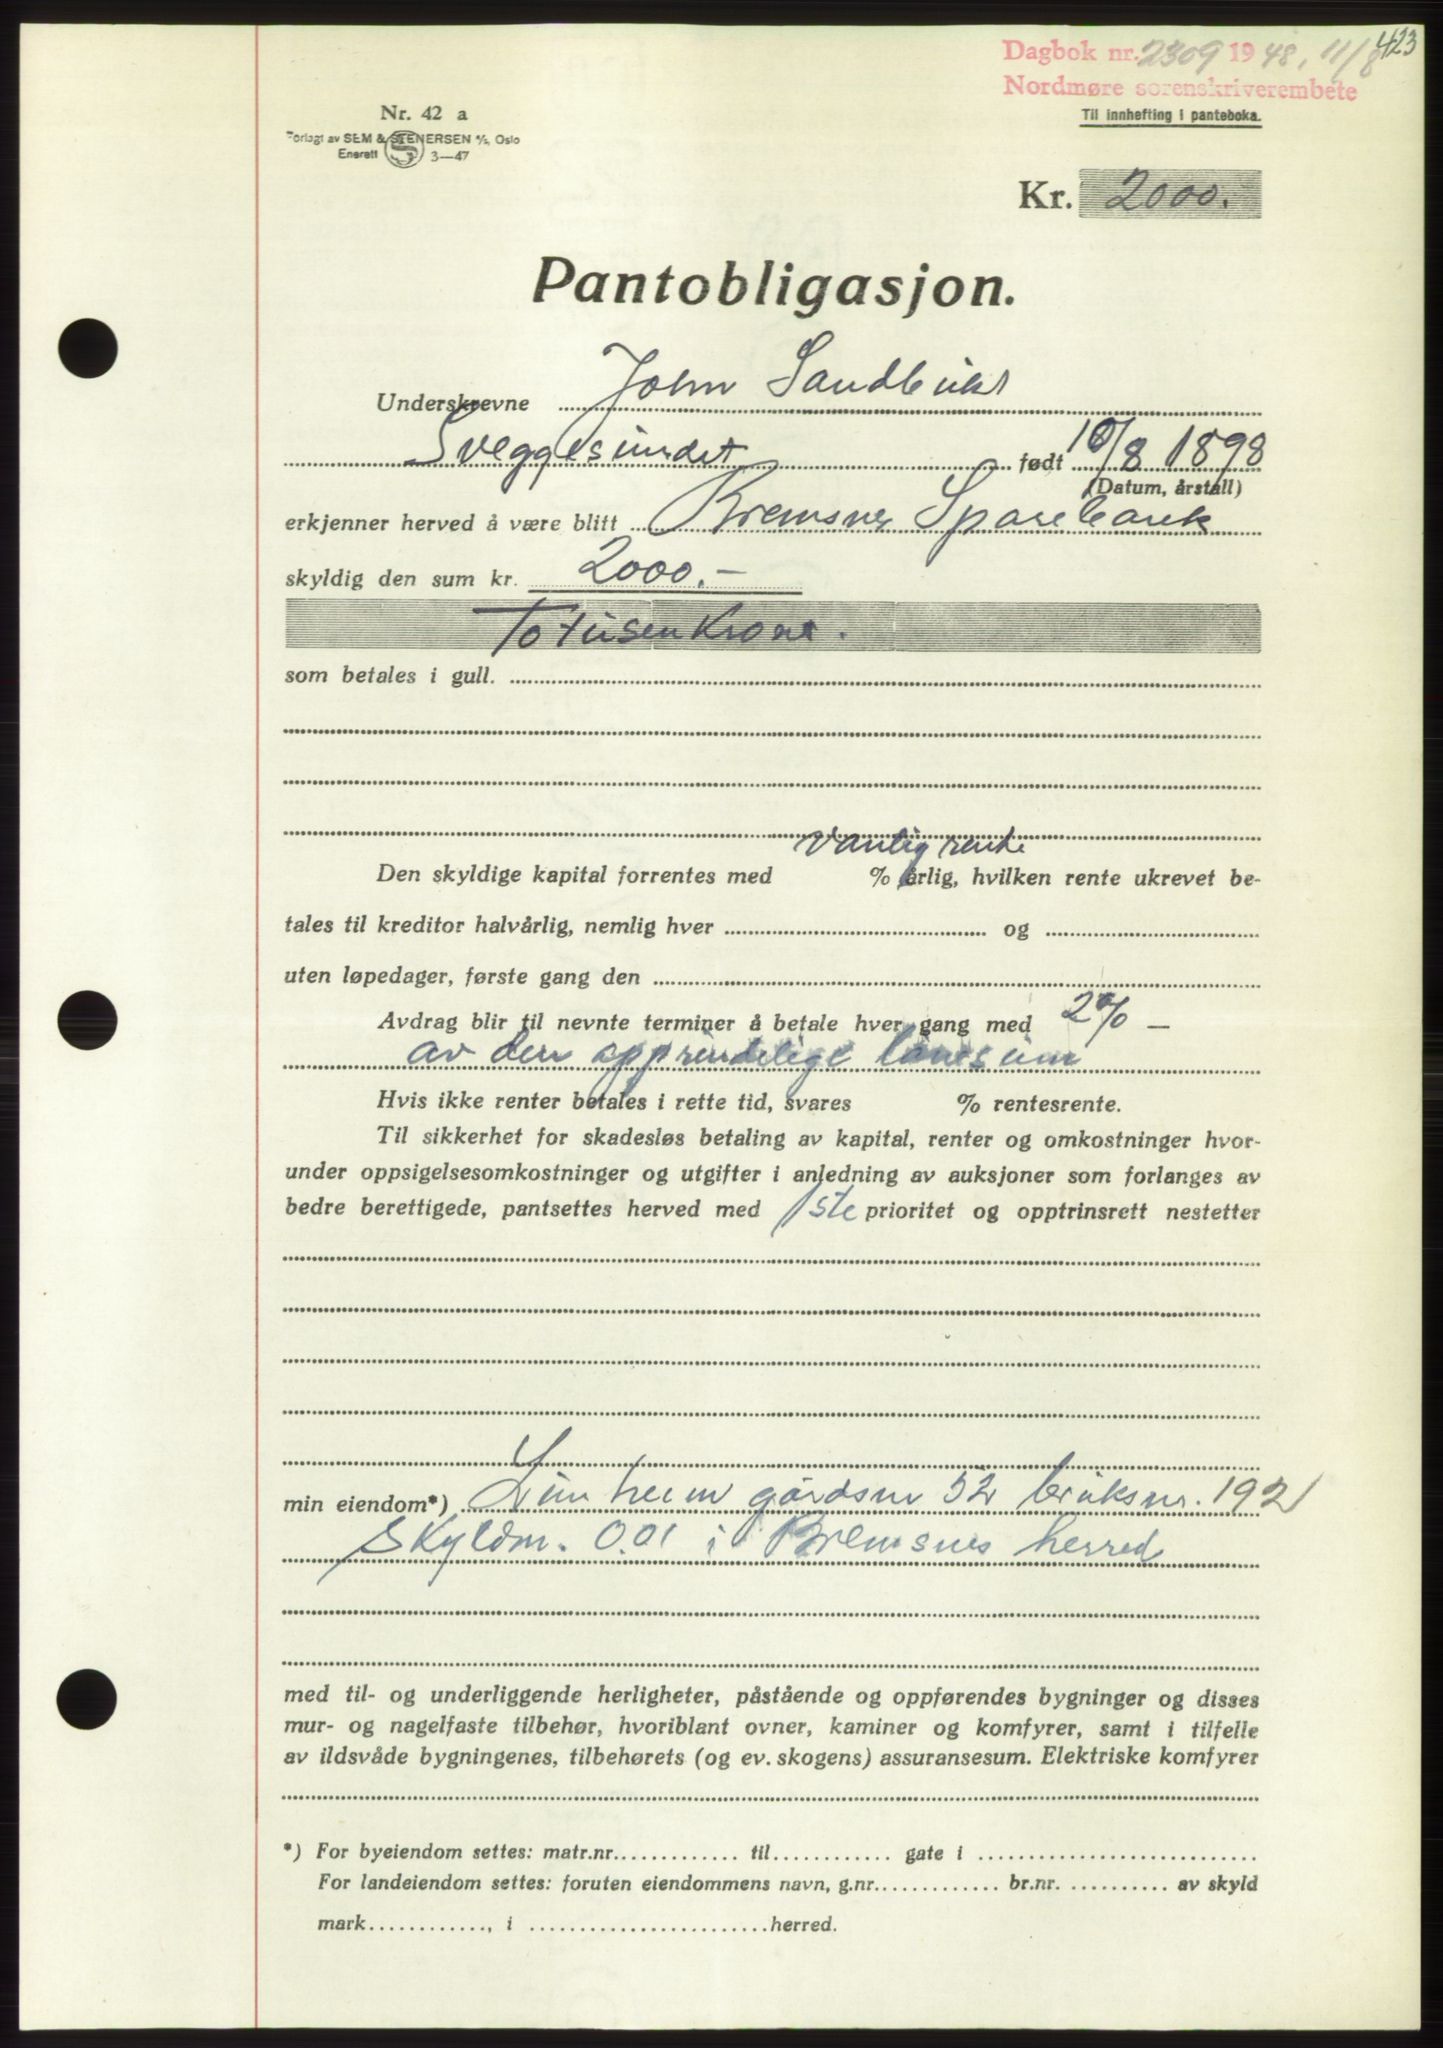 423
Dagbok nr. 2309 1948, 11/8
Nordmøre sorenskriverembete
Til innhefting i panteboka.
Nr. 42 a
Forlagt av SEM & STENERSEN A/S, Oslo
Enerett 3—47
Kr. 2000.
Pantobligasjon.
Underskrevne John Sandbukt
Sveggesundet født 10/8 1898
(Datum, årstall)
erkjenner herved å være blitt Bremsnes Sparebank
skyldig den sum kr. 2000.—
Totusen Kroner.
som betales i gull.
Vanlig rente
Den skyldige kapital forrentes med % årlig, hvilken rente ukrevet be-
tales til kreditor halvårlig, nemlig hver og
uten løpedager, første gang den
Avdrag blir til nevnte terminer å betale hver gang med 2% —
av den opprindelige lånesum
Hvis ikke renter betales i rette tid, svares % rentesrente.
Til sikkerhet for skadesløs betaling av kapital, renter og omkostninger hvor-
under oppsigelsesomkostninger og utgifter i anledning av auksjoner som forlanges av
bedre berettigede, pantsettes herved med 1ste prioritet og opptrinsrett nestetter
min eiendom*) gårdsnr 52 bruksnr. 192
Skyldm. 0.01 i Bremsnes herred
med til- og underliggende herligheter, påstående og oppførendes bygninger og disses
mur- og nagelfaste tilbehør, hvoriblant ovner, kaminer og komfyrer, samt i tilfelle
av ildsvåde bygningenes, tilbehørets (og ev. skogens) assuransesum. Elektriske komfyrer
*) For byeiendom settes: matr.nr. til gate i
For landeiendom settes: foruten eiendommens navn, g.nr. br.nr. av skyld
mark , i herred.